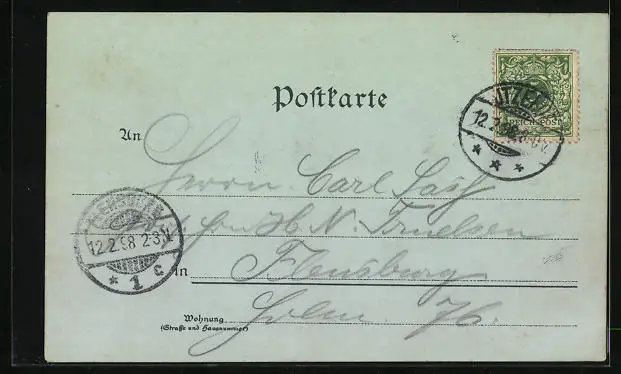 Postkarte
REICHSPOST
12.2.98
An
Herrn Carl
H. N. Truelsen
FLENSBURG
12.2.98 2-3.N
* 1 c
in Flensburg
Holm 76.
Wohnung
(Straße und Hausnummer)